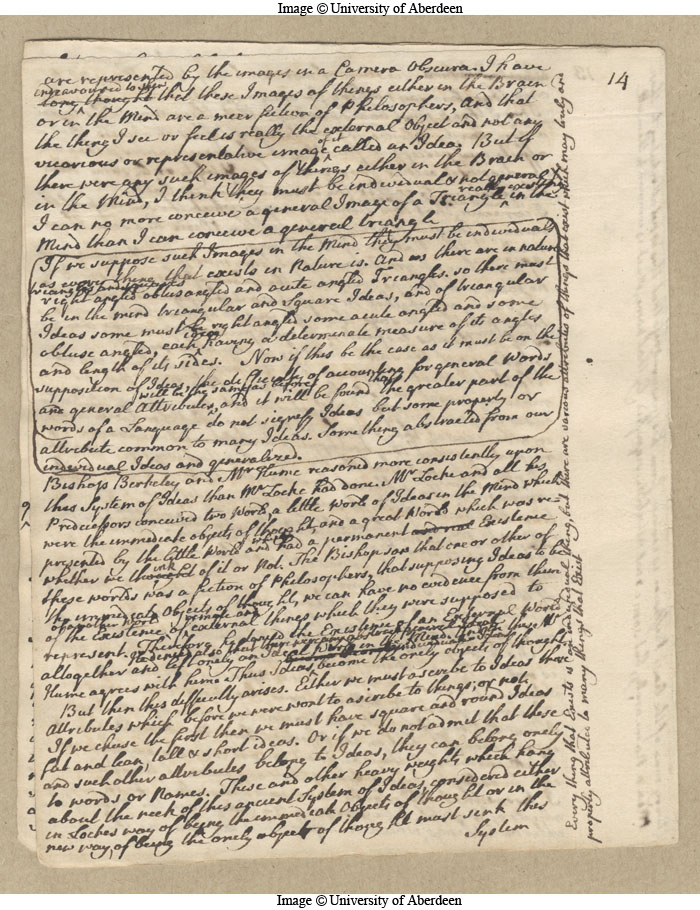 Image © University of Aberdeen
14
are represented by the images in a Camera Obscura. I have
endeavoured to shew
long thought that these Images of things either in the Brain
or in the Mind are a meer fiction of Philosophers, And that
the thing I see or feel is really the external Object and not any
vicarious or representative image called an Idea. But if
there were any such images of things either in the Brain or
in the Mind, I think they must be individual & not general
really existing
I can no more conceive a general Image of a Triangle in the
Mind than I can conceive a general triangle
If we suppose such Images in the Mind they must be individuals
as every thing that exists in Nature is. And as there are in nature
triangles and squares
right angled obtusangled and acute angled Triangles. so there must
be in the mind triangular and Square Ideas, and of triangular
Ideas some must be right angled some acute angled and some
obtuse angled, each having a determinate measure of its angles
and length of its sides. Now if this be the case as it must be on the
supposition of Ideas, the difficulty of accounting for general Words
will be the same as before
and general Attributes, and it will be found that the greater part of the
words of a Language do not signify Ideas but some property or
attribute common to many Ideas. Something abstracted from our
individual Ideas and generalized.
Bishop Berkeley and Mr Hume reasoned more consistently upon
this System of Ideas than Mr Locke had done. Mr Locke and all his
Predecessors conceived two World, a little World of Ideas in the Mind which
were the immediate objects of thought, and a great World which was re-
presented by the little World and had a permanent Existence
whether we think of it or not. The Bishop saw that one or other of
these worlds was a fiction of Philosophers, that supposing Ideas to be
the immediate Objects of thought, we can have no evidence from them
of the Existence of external things which they were supposed to
represent. Therefore he denied the Existence of an External World
altogether and left only an Ideal
Hume agrees with him. Thus Ideas become the onely objects of thought
But then this difficulty arises. Either we must ascribe to Ideas those
Attributes which before we were wont to ascribe to things; or not.
If we chuse the first then we must have square and round Ideas
fat and lean, tall & short ideas. Or if we do not admit that these
and such other attributes belong to Ideas, they can belong onely
to words or Names. These and other heavy weights which hang
about the neck of this ancient System of Ideas considered either
in Lockes way of being the immediate Objects of thought or in the
new way, of being the onely object of thought must sink this
System
Every thing that Exists is an individual thing, but there are various attributes of things that exist which may truly and
properly attributes to many things that Exist
Image © University of Aberdeen